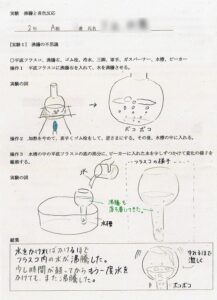 実験 沸騰と炎色反応
2年 A組 番 氏名
【実験1】 沸騰の不思議
◎平底フラスコ、沸騰石、ゴム栓、冷水、三脚、軍手、ガスバーナー、水槽、ビーカー
操作1 平底フラスコに沸騰石を入れて、水を沸騰させる。
実験の図
ボコ ボコ
操作2 加熱をやめて、素早くゴム栓をして、逆さまにする。その後、水槽の中に入れる。
操作3 水槽の中の平底フラスコの底の部分に、ビーカーに入れた水を少しずつかけて変化の様子を
観察する。
実験の図
フラスコの様子
水
水槽
沸騰も
落ち着いてきた
結果
水をかければかけるほど
フラスコ内の水が沸騰した。
少し時間が経ってからもう一度水を
かけても、また沸騰した。
激しく
ボコボコ